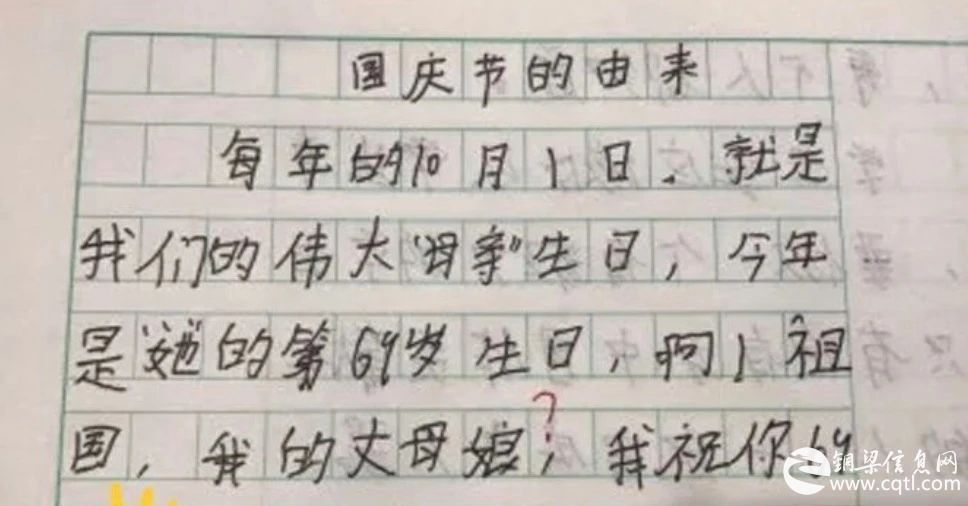 国庆节的由来
每年的10月1日.就是
我们的伟大"母亲"生日,今年
是"她"的第69岁生日,啊!祖
国,我的丈母娘,我祝你69
?
铜梁信息网
www.cqtl.com